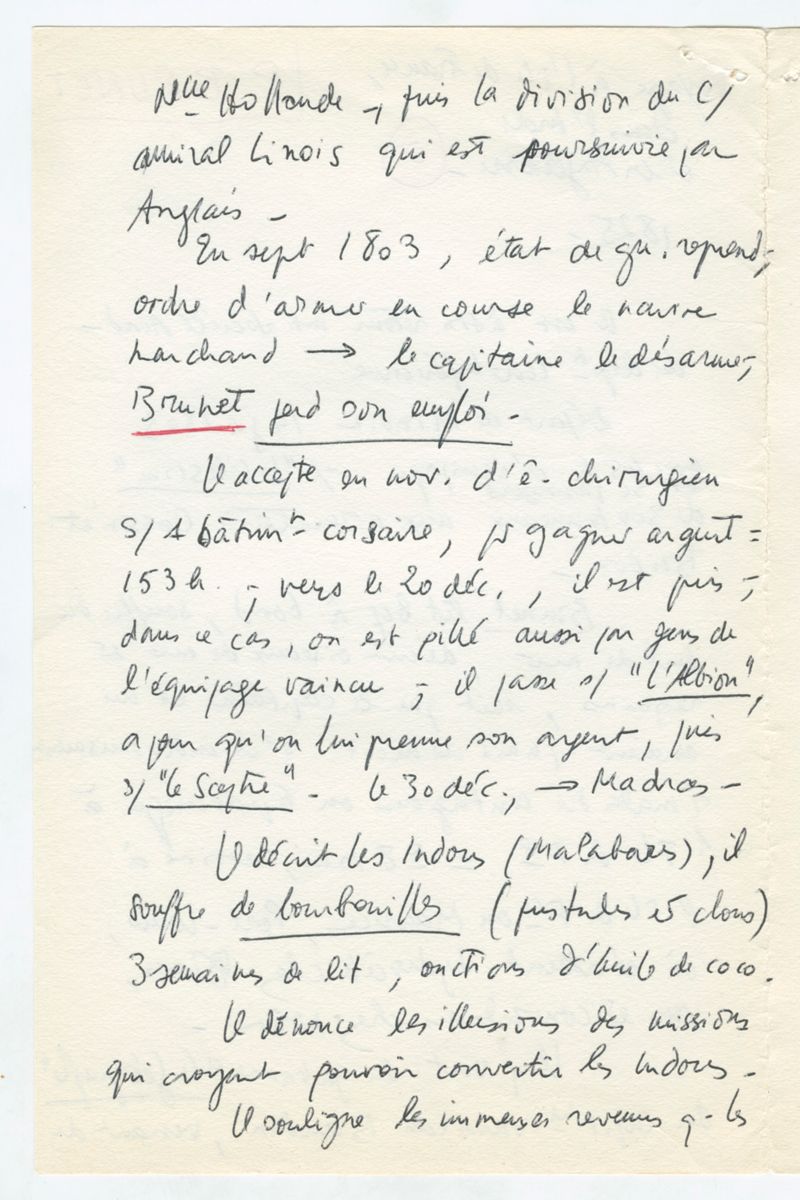 Nlle Hollande -, puis la division du C/
amiral Linois qui est poursuivie par
Anglais -
En sept 1803, état de gu. reprend,
ordre d'armer en course le navire
marchand → le capitaine le désarme,
Brunet perd son emploi -
Il accepte en nov. d'ê. chirurgien
s/ 1 bâtimt corsaire, pr gagner argent =
153 h. -, vers le 20 déc., il est pris -,
dans ce cas, on est pillé aussi par gens de
l'équipage vaincu -, il passe s/ "l'Albion",
a peur qu'on lui prenne son argent, puis
s/ "le Sceptre" - le 30 déc., → Madras -
Il décrit les Indous (Malabares), il
souffre de bourbouilles (pustules et clous)
3 semaines de lit, onctions d'huile de coco.
Il dénonce les illusions des missions
qui croyent pouvoir convertir les Indous -
Il souligne les immenses revenus q- les